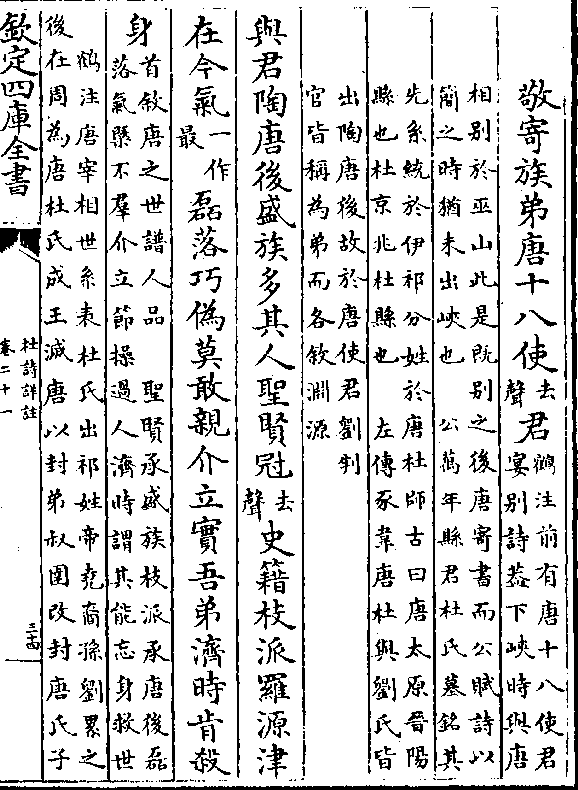 敬寄族弟唐十八使去聲君鶴注前有唐十八使君
宴别詩葢下峽時與唐
相别於巫山此是既别之後唐寄書而公賦詩以
簡之時猶未出峽也　公萬年縣君杜氏墓銘其
先系統於伊祁分姓於唐杜師古曰唐太原晉陽
縣也杜京兆杜縣也　左傳豕韋唐杜與劉氏皆
出陶唐後故於唐使君劉判
官皆稱為弟而各敘淵源
與君陶唐後盛族多其人聖賢冠去聲史籍枝派羅源津
在今氣一作最磊落巧偽莫敢親介立實吾弟濟時肯殺
身首敘唐之世譜人品　聖賢承盛族枝派承唐後磊
落氣槩不羣介立節操過人濟時謂其能忘身救世
鶴注唐宰相世系表杜氏出祁姓帝堯裔孫劉累之
後在周為唐杜氏成王滅唐以封弟叔圉改封唐氏子
欽定四庫全書
杜詩詳註
卷二十一
三十四